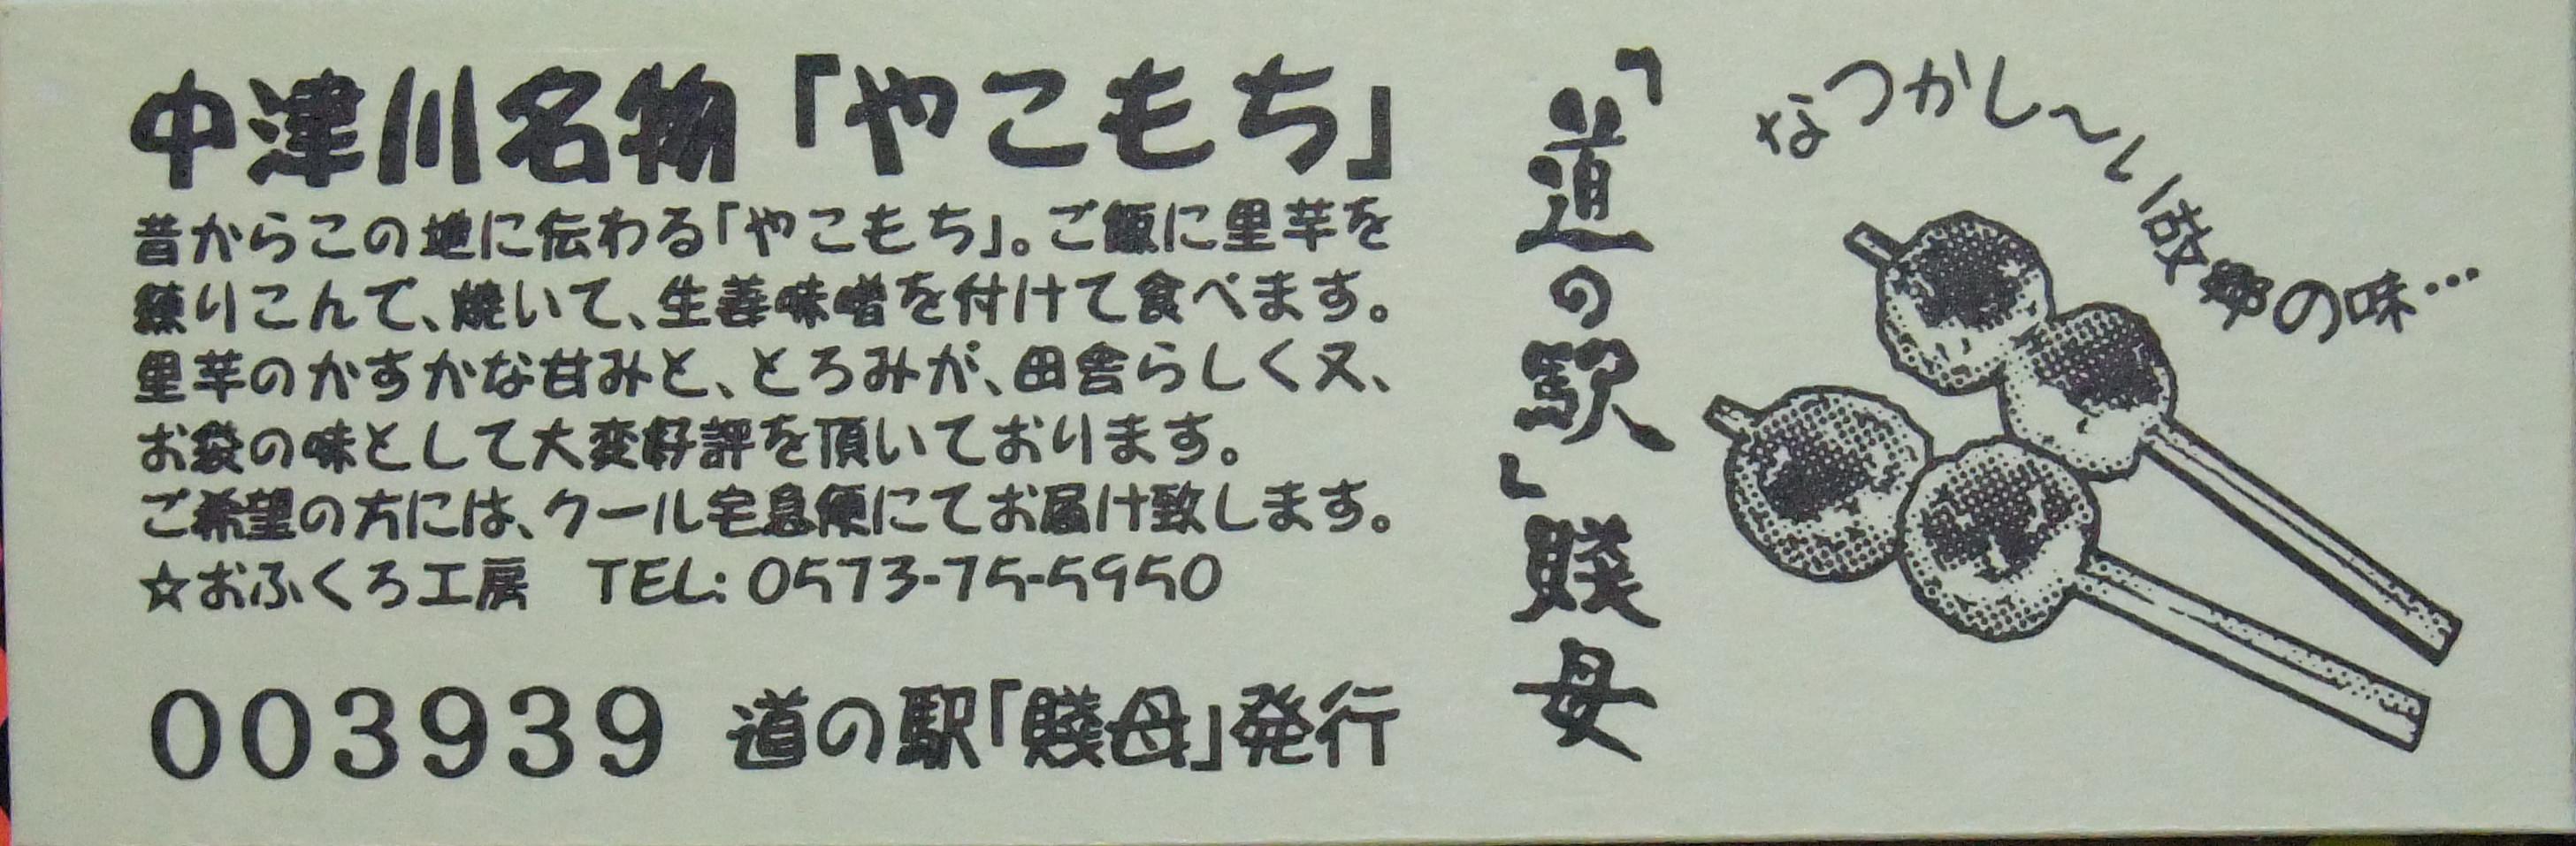 中津川名物「やこもち」
昔からこの地に伝わる「やこもち」。ご飯に里芋を
練りこんで、焼いて、生姜味噌を付けて食べます。
里芋のかすかな甘みと、とろみが、田舎らしく又、
お袋の味として大変好評を頂いております。
ご希望の方には、クール宅急便にてお届け致します。
☆おふくろ工房 TEL: 0573-75-5950
003939 道の駅「賤母」発行
「道の駅」賤母
なつかし〜い故郷の味…